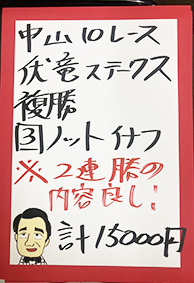 中山10レース
伏竜ステークス
複勝
③ノットイナフ
※2連勝の
内容良し!
計15000円